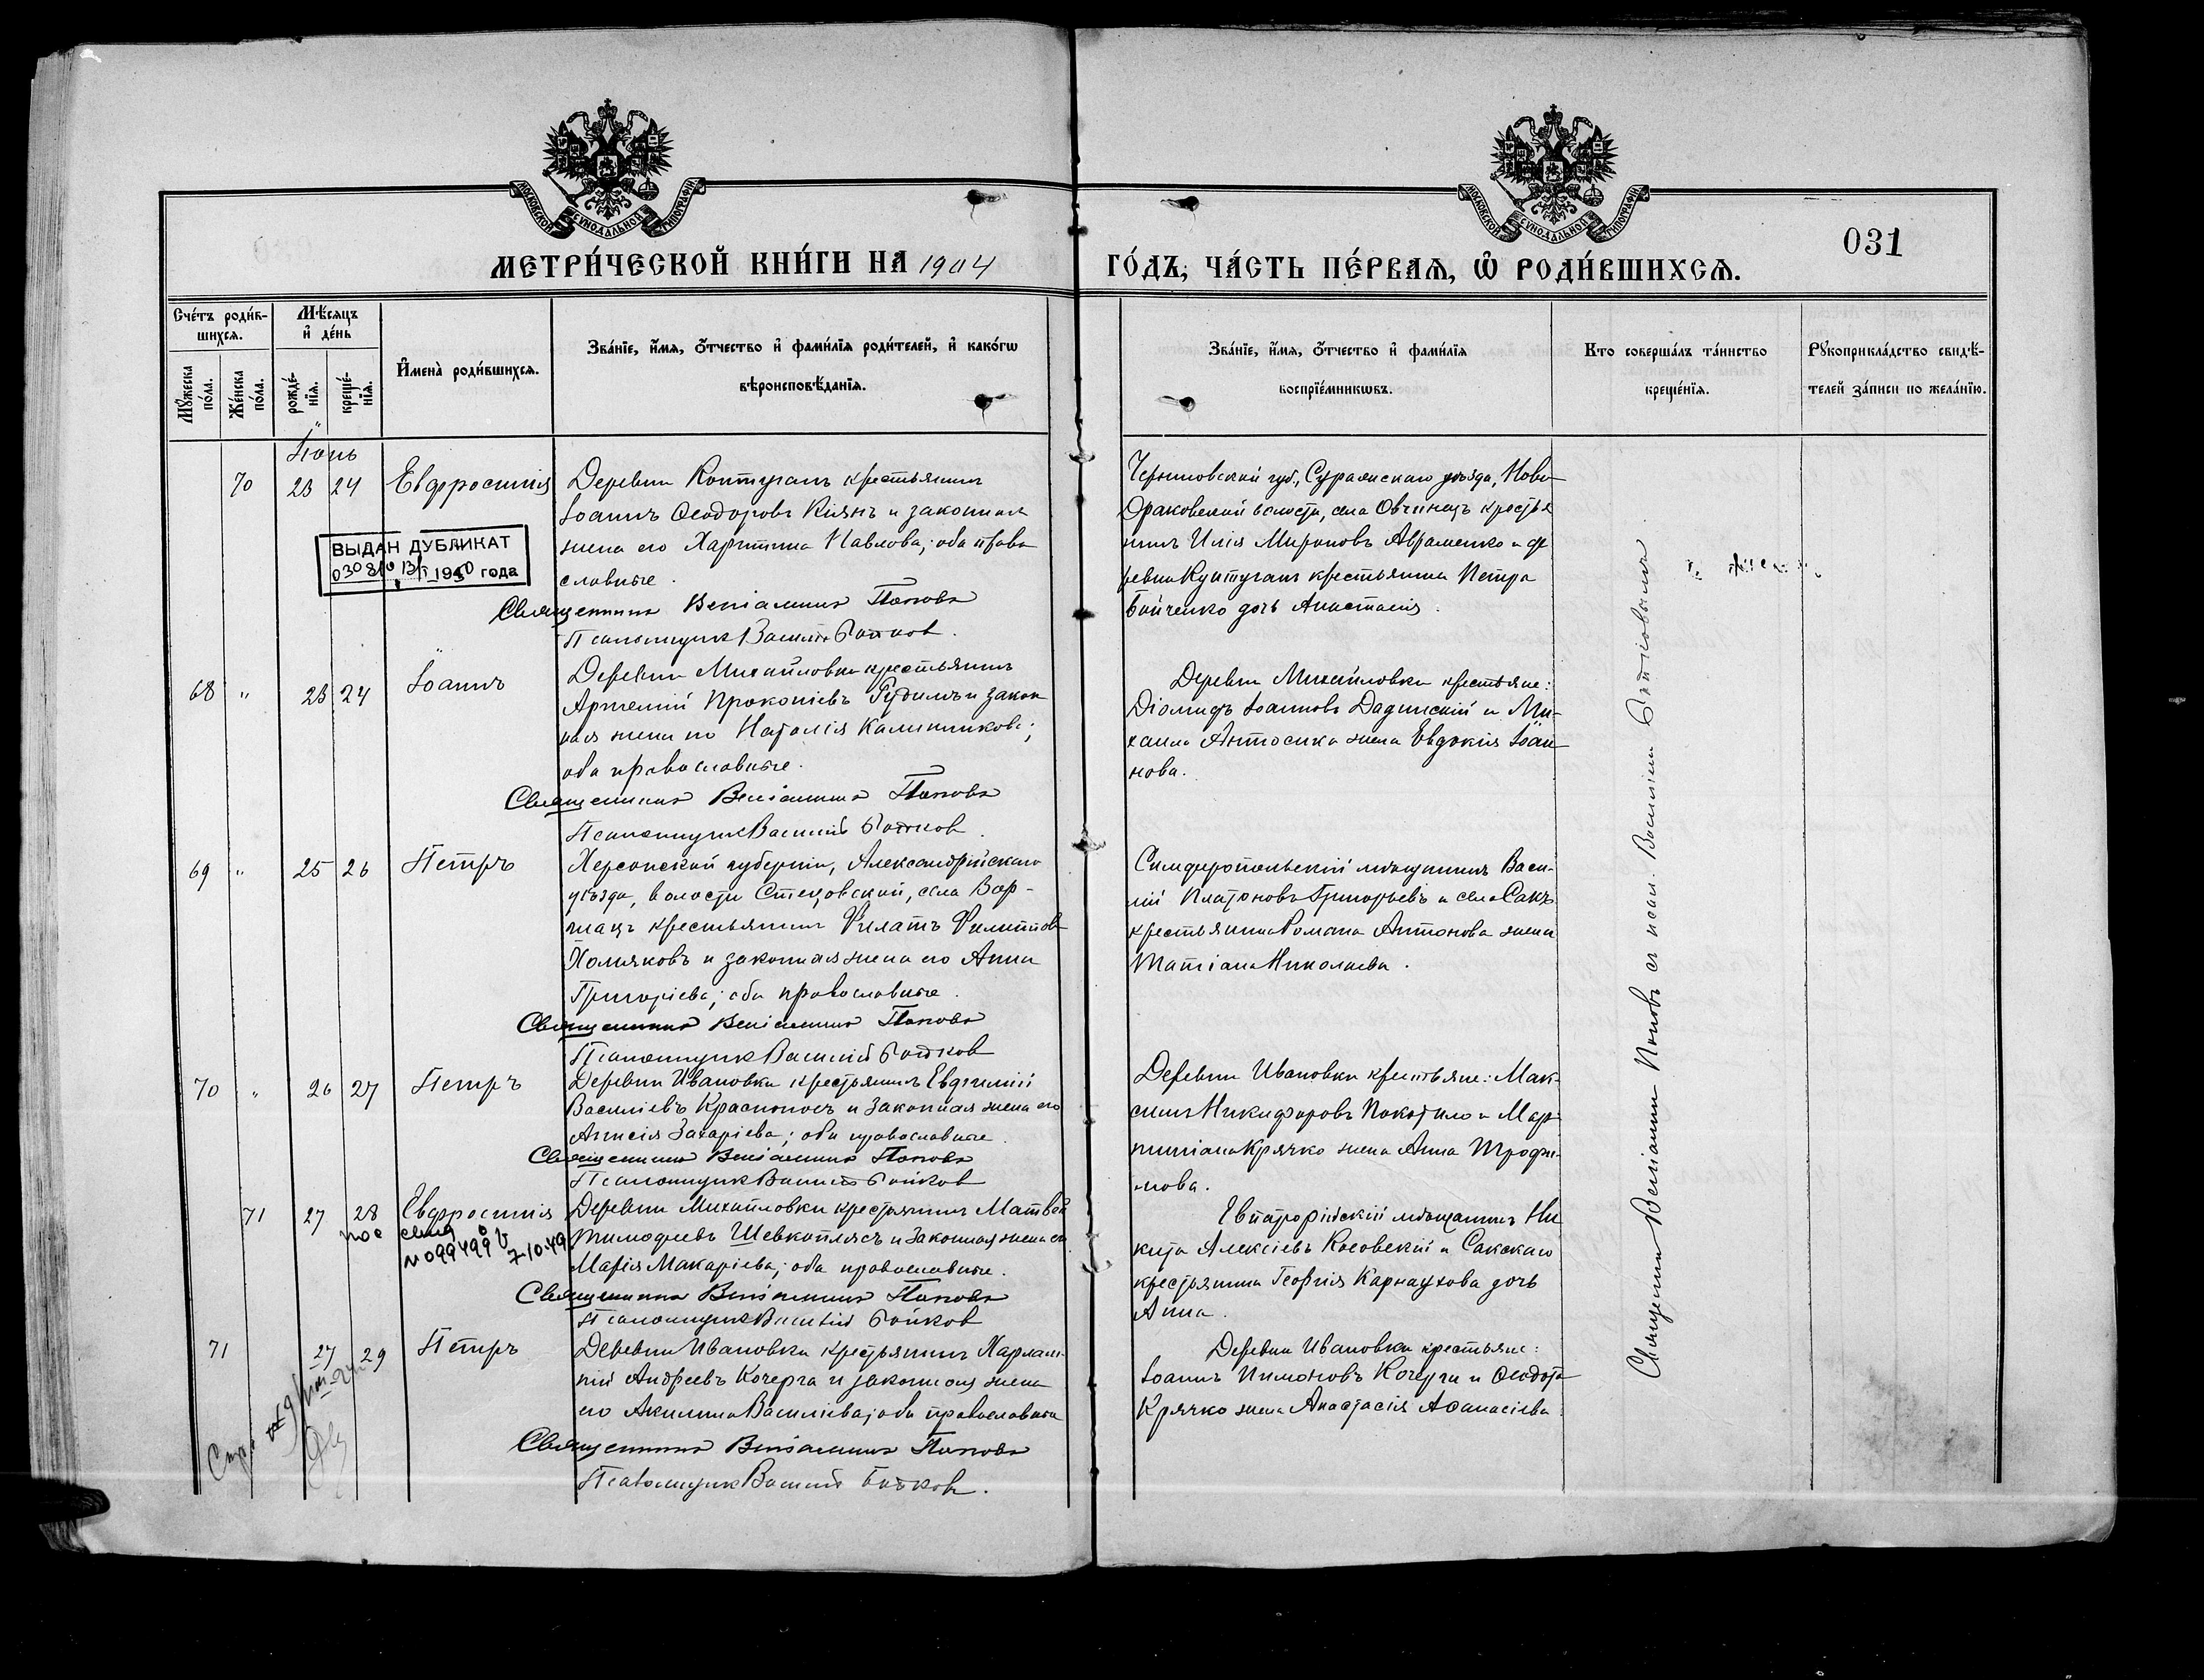 МОСКОВСКОЙ СѴНОДАЛЬНОЙ ТИПОГРАФІИ
МОСКОВСКОЙ СѴНОДАЛЬНОЙ ТИПОГРАФІИ
031
МЕТРИ́ЧЕСКОЙ КНИ́ГИ НА 1904 ГО́ДЪ, ЧА́СТЬ ПЕ́РВАѦ, Ѡ҆ РОДИ́ВШИХСѦ.
Сче́тъ роди́в-
шихсѧ.
Мꙋ́жеска по́ла.
Же́нска по́ла.
Мѣ́сѧцъ
и҆ де́нь
рожде́-
нїѧ.
креще́-
нїѧ.
И҆мена̀ роди́вшихсѧ.
Зва́нїе, и҆́мѧ, ѻ҆́тчество и҆ фами́лїѧ роди́телей, и҆ како́гѡ
вѣроисповѣ́данїѧ.
Зва́нїе, и҆́мѧ, ѻ҆́тчество и҆ фами́лїѧ
воспрїе́мникѡвъ.
Кто соверша́лъ та́инство
креще́нїѧ.
Рꙋкоприкла́дство свидѣ́-
телей за́писи по жела́нїю.
Іюнь
70 23 24 Евфросинія
Деревни Контуганъ крестьянинъ
Іоаннъ Ѳеодоровъ Кіянъ и законная
жена его Харитина Павлова; оба право
славные.
Священникъ Веніаминъ Поповъ
Псаломщик Василій Бойков.
ВЫДАН ДУБЛИКАТ
1950 года
Черниговской губ., Суражскаго уѣзда, Ново
Драковской волости, села Овчинецъ крестья
нинъ Илія Мироновъ Авраменко и де
ревни Кунтуганъ крестьянина Петра
Бойченко дочь Анастасія.
68 " 23 24 Іоаннъ
Деревни Михайловки крестьянинъ
Артемій Прокопіевъ Рудимъ и закон
ная жена его Наталія Калинникова;
оба православные.
Священникъ Веніаминъ Поповъ
Псаломщик Василій Бойков.
Деревни Михайловки крестьяне:
Діомидъ Іоанновъ Дадинскій и Ми-
хаила Антосика жена Евдокія Іоан-
нова.
69 " 25 26 Петръ
Херсонской губерніи, Александрійскаго
уѣзда, волости Стецовской, села Вор-
шацъ крестьянинъ Филатъ Филиппов
Холмяковъ и законная жена его Анна
Григоріева; оба православные.
Священникъ Веніаминъ Поповъ
Псаломщик Василій Бойков
Симферопольскій мѣщанинъ Васи-
лій Платоновъ Григорьевъ и села Сакъ
крестьянина Романа Антонова жена
Татіана Николаева.
70 " 26 27 Петръ
Деревни Ивановки крестьянинъ Евфимій
Василіевъ Красноносъ и законная жена его
Анисія Захаріева; оба православные.
Священникъ Веніаминъ Поповъ
Псаломщик Василій Бойков
Деревни Ивановки крестьяне: Мак-
симъ Никифоровъ Покотило и Мар-
тиніана Крячко жена Анна Трофи-
мова.
71 27 28 Евфросинія
7-10-49.
Деревни Михайловки крестьянинъ Матвей
Тимофеевъ Шевкоплясъ и законная жена его
Марія Макаріева; оба православные.
Священникъ Веніаминъ Поповъ
Псаломщик Василій Бойков
Евпаторійскій мѣщанинъ Ни-
кита Алексіевъ Косовскій и Сакскаго
крестьянина Георгія Карнаухова дочь
Анна.
71 27 29 Петръ
Деревни Ивановки крестьянинъ Харлам-
пій Андреевъ Кочерга и законная жена
его Акилина Василіева; оба православные
Священникъ Веніаминъ Поповъ
Псаломщик Василій Бойков.
Деревни Ивановки крестьяне:
Іоаннъ Пимоновъ Кочерга и Ѳеодота
Крячко жена Анастасія Аѳанасіева.
Священникъ Веніаминъ Поповъ съ псал. Василіемъ